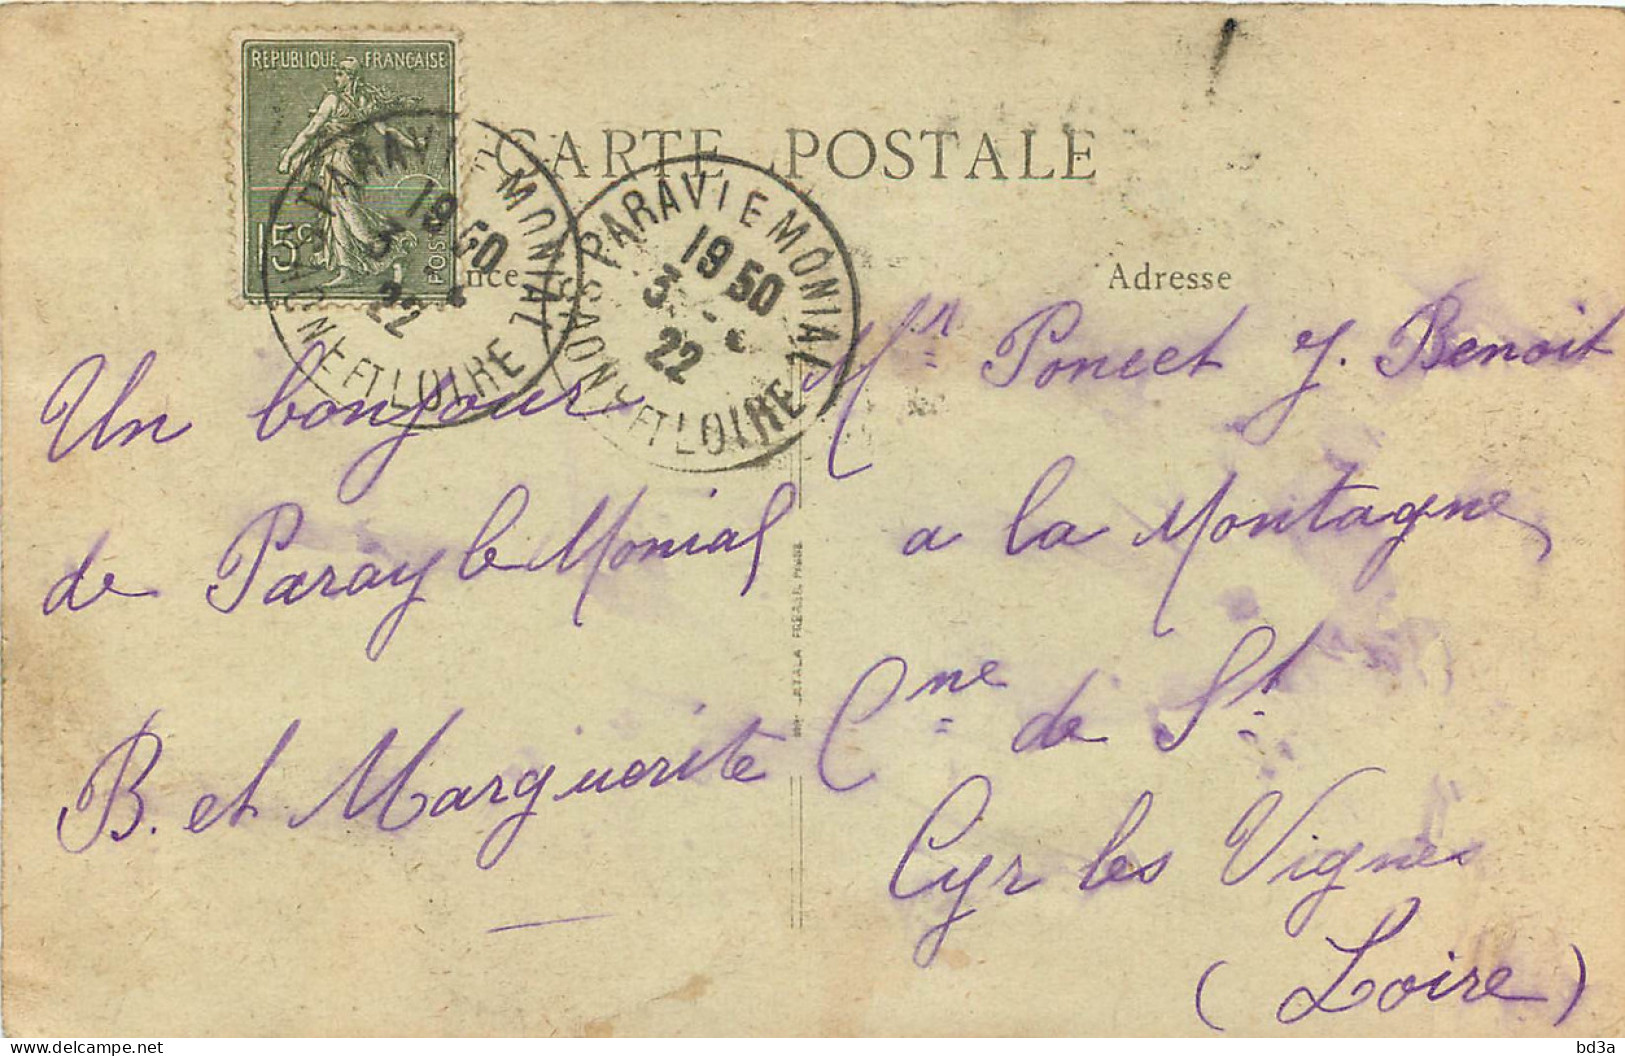 REPUBLIQUE FRANCAISE
15c
POSTES
CARTE POSTALE
PARAY LE MONIAL
19 50
3
22
SAONE ET LOIRE
PARAY LE MONIAL
19 50
3
22
SAONE ET LOIRE
nce
Adresse
Un bonjour
de Paray le Monial
B. et Marguerite
Mr Poncet J. Benoit
a la Montagne
Cne de St
Cyr les Vignes
(Loire)
bd3a